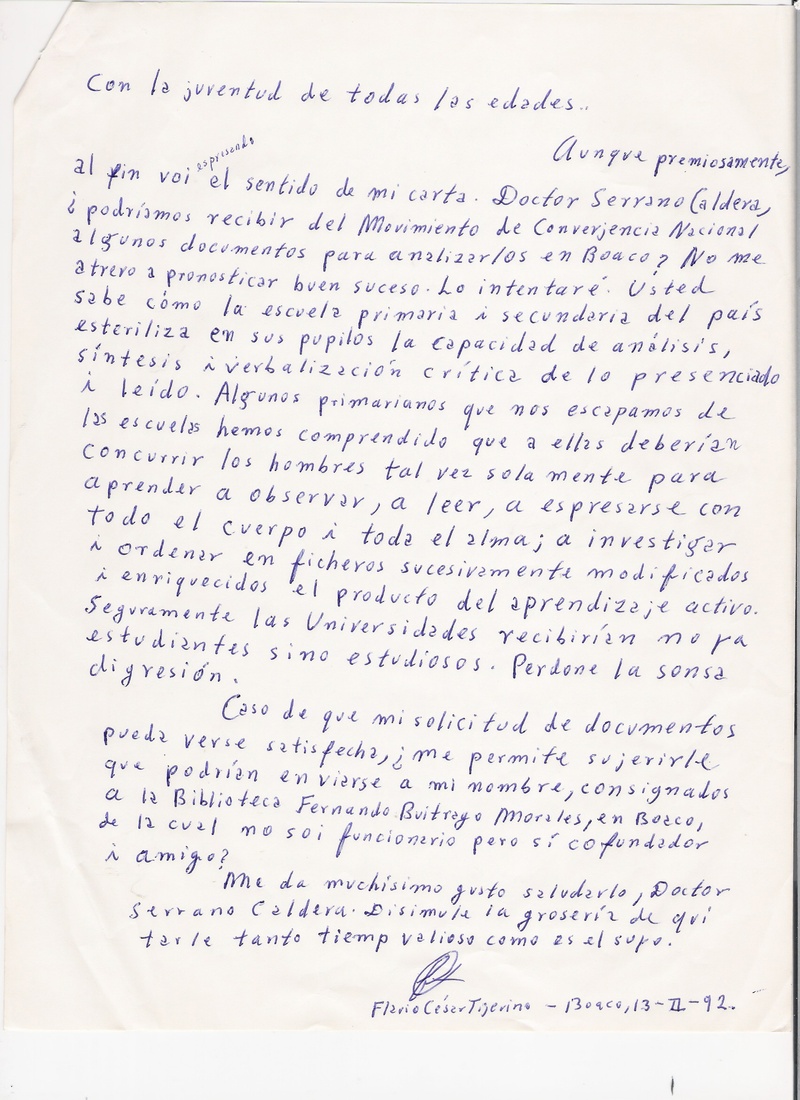 Con la juventud de todas las edades..
Aunque premiosamente,
al fin voi espresando el sentido de mi carta. Doctor Serrano Caldera,
¿podríamos recibir del Movimiento de Converjencia Nacional
algunos documentos para analizarlos en Boaco? No me
atrevo a pronosticar buen suceso. Lo intentaré. Usted
sabe cómo la escuela primaria i secundaria del país
esteriliza en sus pupilos la capacidad de análisis,
síntesis i verbalización crítica de lo presenciado
i leído. Algunos primarianos que nos escapamos de
las escuelas hemos comprendido que a ellas deberían
concurrir los hombres tal vez sola mente para
aprender a observar, a leer, a espresarse con
todo el cuerpo i toda el alma; a investigar
i ordenar en ficheros sucesivamente modificados
i enriquecidos el producto del aprendizaje activo.
Seguramente las Universidades recibirían no ya
estudiantes sino estudiosos. Perdone la sonsa
digresión.
Caso de que mi solicitud de documentos
pueda verse satisfecha, ¿me permite sujerirle
que podrían enviarse a mi nombre, consignados
a la Biblioteca Fernando Buitrago Morales, en Boaco,
de la cual no soi funcionario pero sí cofundador
i amigo?
Me da muchísimo gusto saludarlo, Doctor
Serrano Caldera. Disimule la grosería de qui
tarle tanto tiemp valioso como es el suyo.
Flavio César Tijerino - Boaco, 13-II-92.